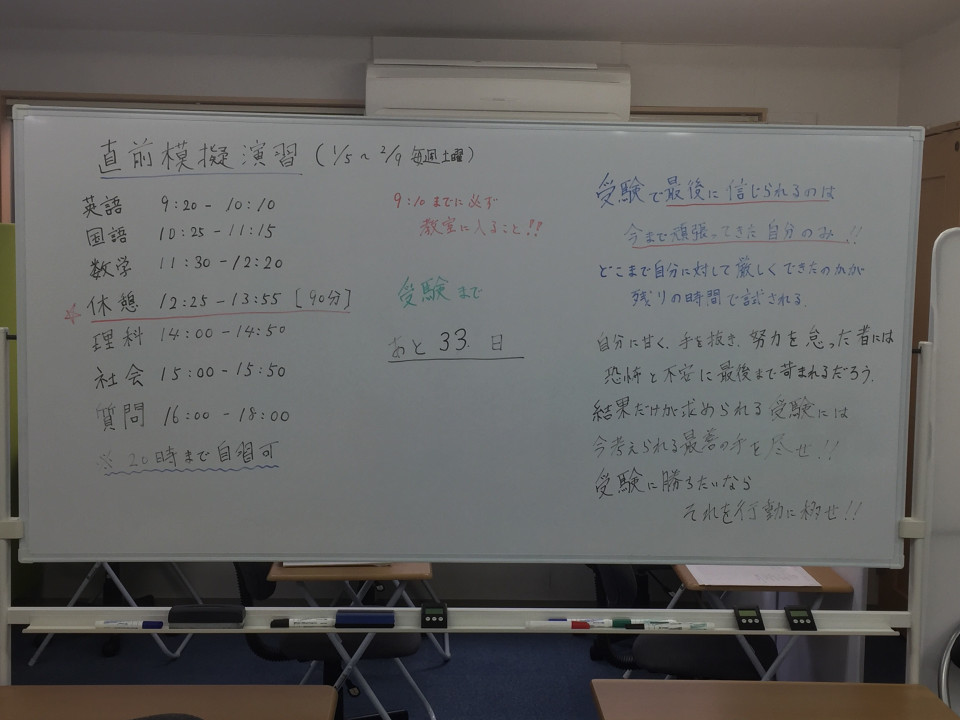 直前模擬演習 (1/5〜2/9 毎週土曜)
英語 9:20-10:10
国語 10:25-11:15
数学 11:30-12:20
☆休憩 12:25-13:55 [90分]
理科 14:00-14:50
社会 15:00-15:50
質問 16:00-18:00
※ 20時まで自習可
9:10までに必ず
教室に入ること!!
受験まで
あと 33 日
受験で最後に信じられるのは
今まで頑張ってきた自分のみ!!
どこまで自分に対して厳しくできたのかが
残りの時間で試される.
自分に甘く、手を抜き、努力を怠った者には
恐怖と不安に最後まで苛まれるだろう.
結果だけが求められる受験には
今考えられる最善の手を尽せ!!
受験に勝ちたいなら
それを行動に移せ!!